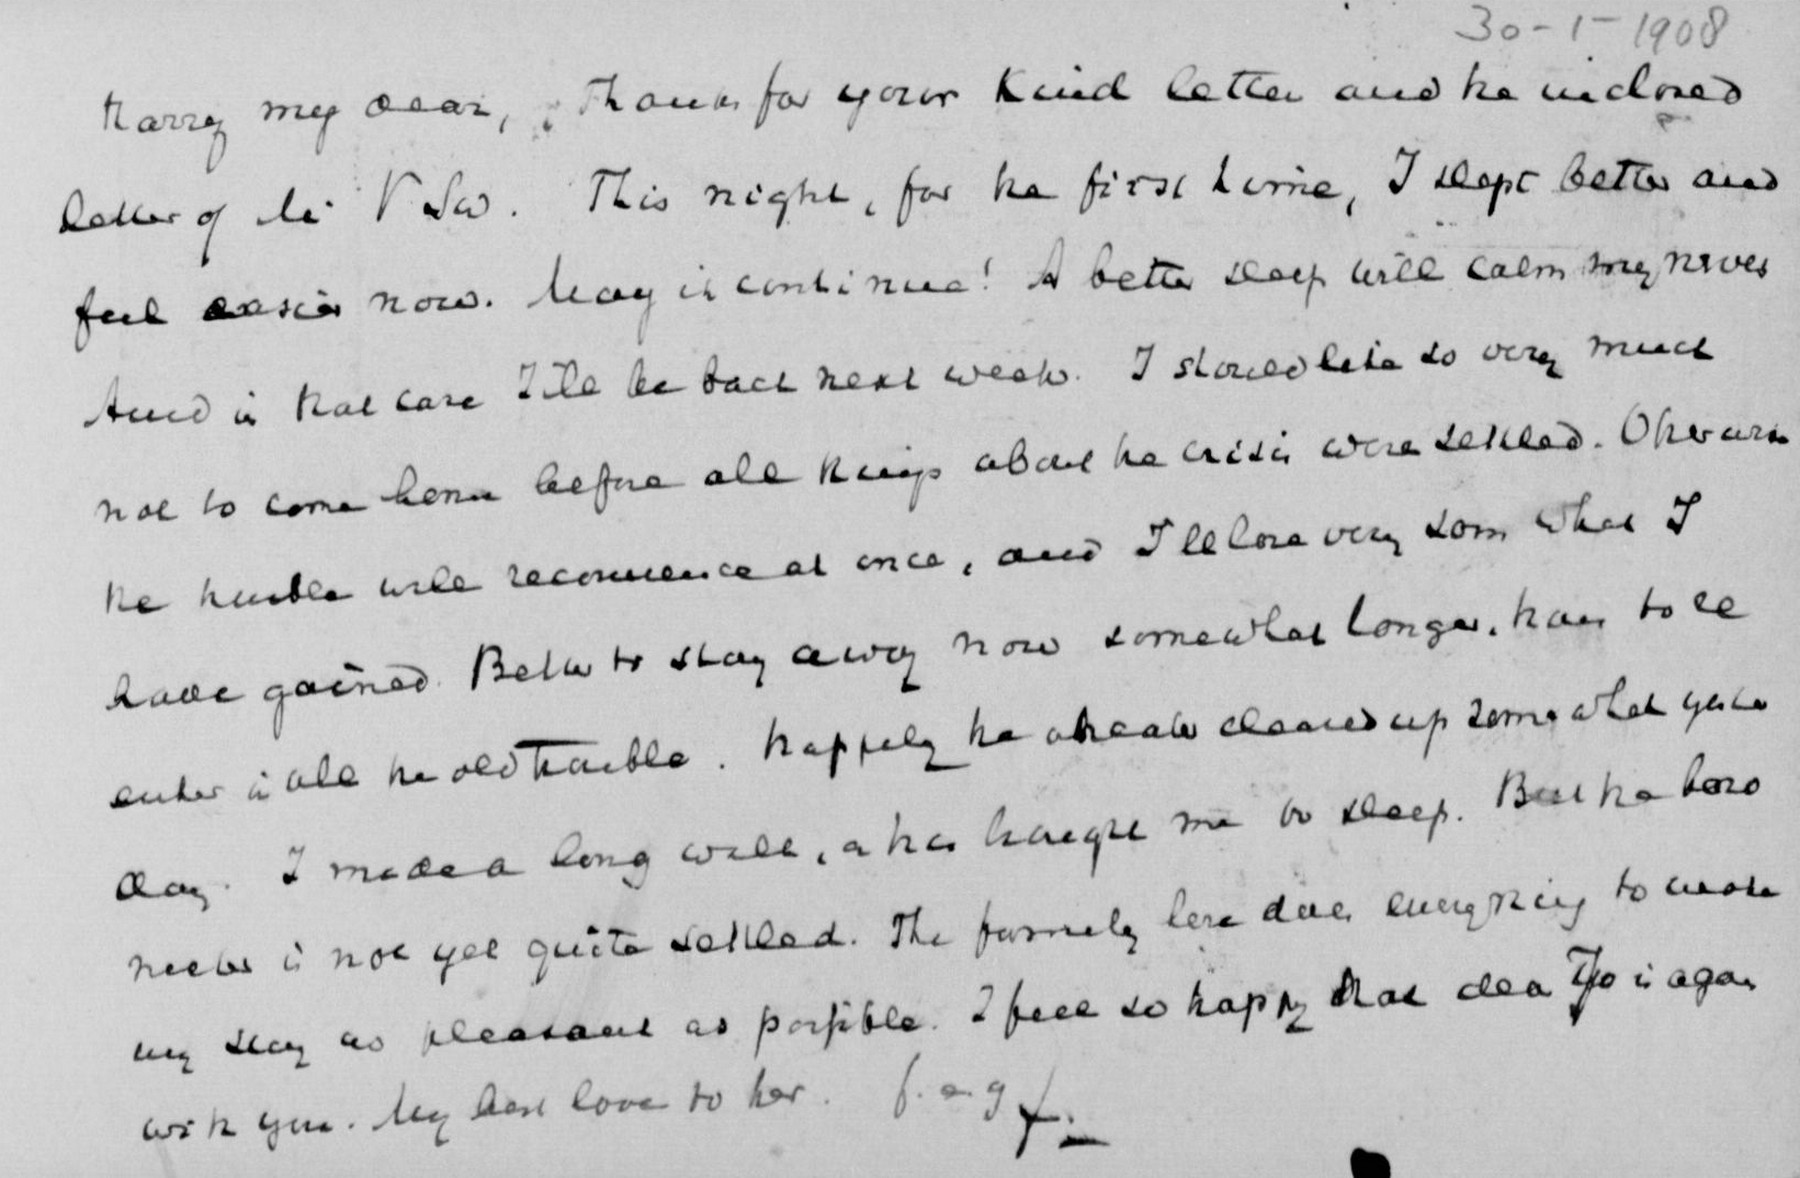 30-1-1908
Harry my dear, Thanks for your kind letter and the inclosed
letter of Mr V. This night, for the first time, I slept better and
feel easier now. May it continue! A better sleep will calm my nerves
And in that case I'll be back next week. I should like so very much
not to come home before all things about the crisis were settled. Otherwise
the trouble will recommence at once, and I'll lose very soon what I
have gained. Better to stay away now somewhat longer, than to
enter in all the old trouble. Happily the weather cleared up somewhat yester
day. I made a long walk, a that brought me to sleep. But the baro
meter is not yet quite settled. The family here does everything to make
my stay as pleasant as possible. I feel so happy that dear is again
with you. My best love to her.